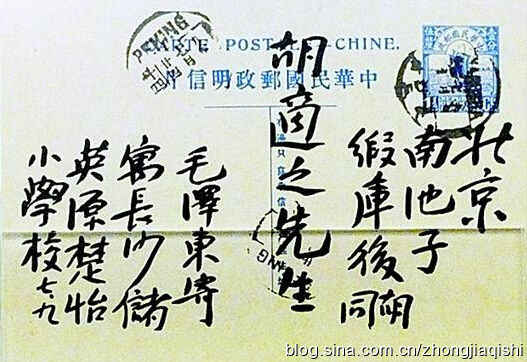 PEKING
CARTE POSTALE-CHINE.
中華民國郵政明信片
北京
南池子
緞庫後胡
同
胡適之先生
毛澤東寄
寓長沙儲
英源楚怡
小學校 七,九
blog.sina.com.cn/zhongjiaqishi